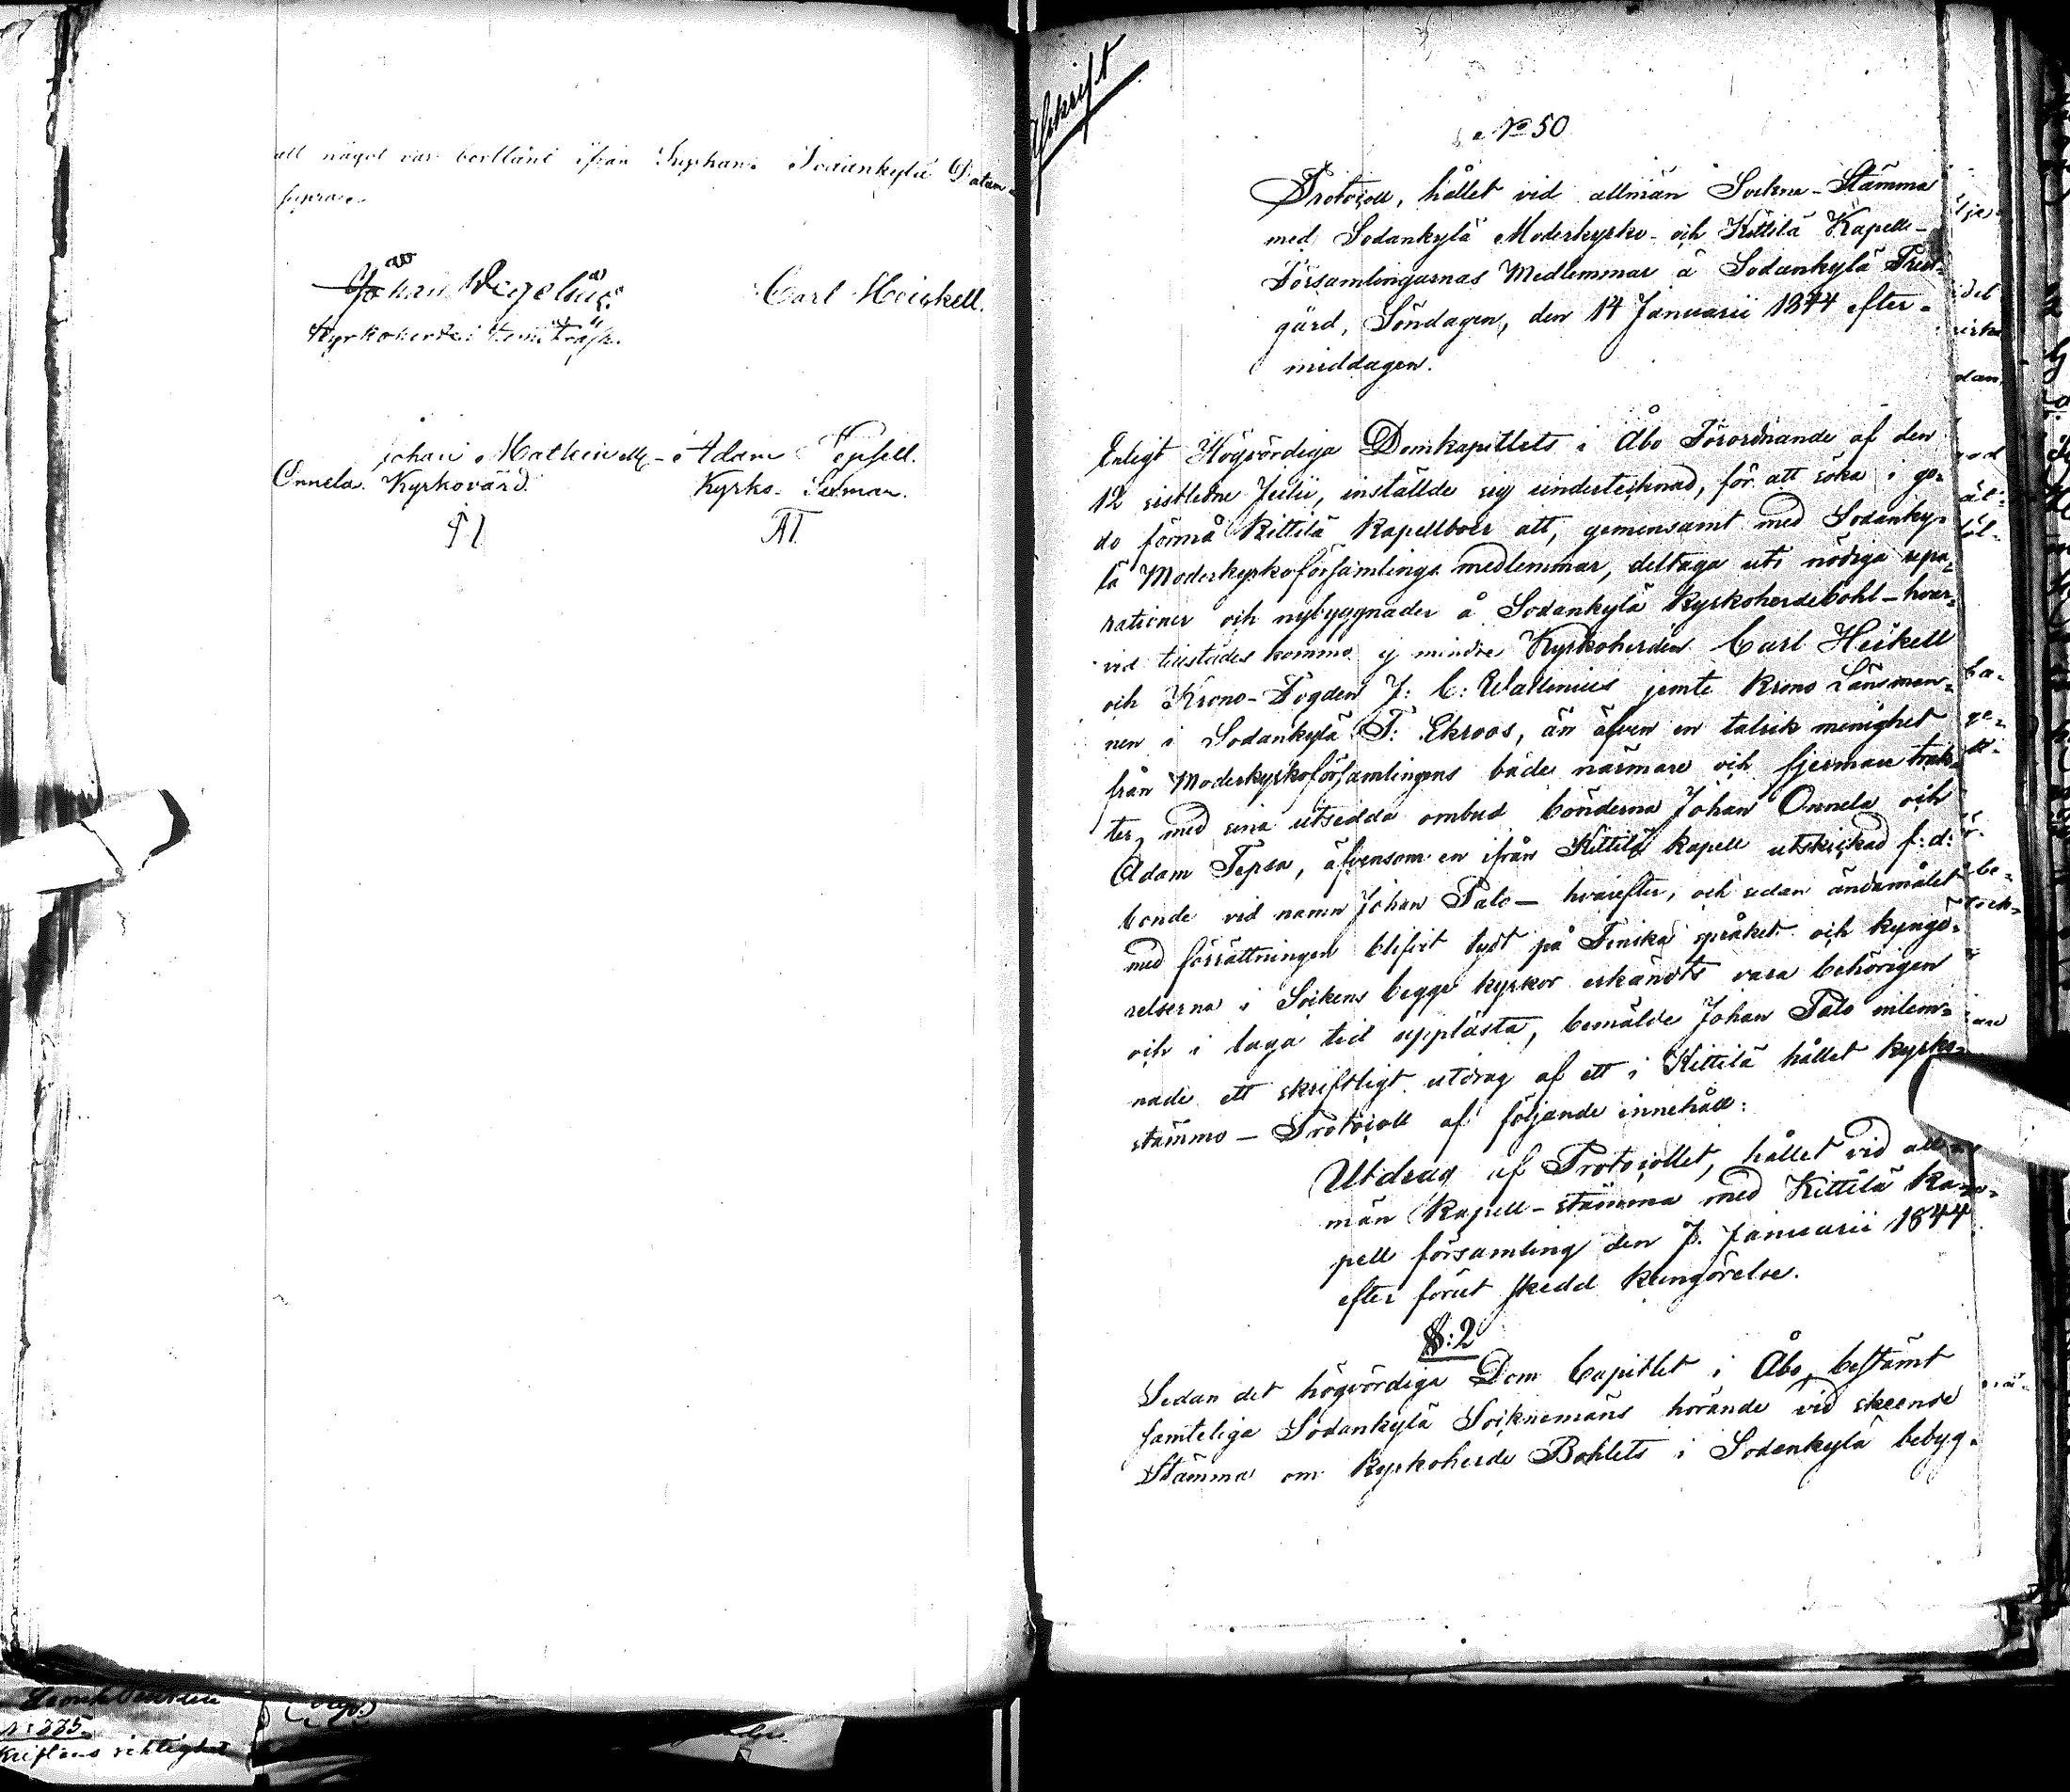 att något var bortlånt ifrån Sodankylä Datum
supra.
Johan Wegelius. Carl Heickell.
Kyrkoherde i Kemiträsk.
Johan Adam Tepsell.
Onnela. Kyrkovärd. Kyrko-
AT
Afskrift
No 50
Protocoll, hållet vid allmän Sockne-Stämma
med Sodankylä Moderkyrko- och Kittilä Kapell-
Församlingarnas Medlemmar å Sodankylä Prest-
gård, Söndagen, den 14 Januarii 1844 efter-
middagen.
Enligt Högvördiga Domkapitlets i Åbo Förordnande af den
12 sistledne Julii, inställde sig undertecknad, för att söka i go-
do förmå Kittilä Kapellboer att, gemensamt med Sodanky-
lä Moderkyrkoförsamlings medlemmar, deltaga uti nödiga repa-
rationer och nybyggnader å Sodankylä Kyrkoherdebohl - hvar-
vid tillstädes kommo ej mindre Kyrkoherden Carl Heikell
och Krono-Fogden J: C: Wallenius jemte Krono Länsman-
nen i Sodankylä F: Ekroos, än äfven en talrik menighet
från Moderkyrkoförsamlingens både närmare och fjermare trak-
ter, med sina utsedda ombud bönderna Johan Onnela och
Adam Tepsa, äfvensom en ifrån Kittilä kapell utskickad f: d:
bonde vid namn Johan Palo - hvarefter, och sedan ändamålet
med förrättningen blifvit tydt på Finska språket och kyngö-
relserna i Sockens begge kyrkor erkändts vara behörigen
och i laga tid upplästa, bemälde Johan Palo inlem-
nade ett skriftligt utdrag af ett i Kittilä hållet kyrko-
stämmo-Protocoll af följande innehåll:
Utdrag af Protocollet, hållet vid all-
män Kapell-stämma med Kittilä Ka-
pell församling den 7. Januarii 1844
efter förut skedd kungörelse.
§:2
Sedan det högvördiga Dom Capitlet i Åbo, bestämt
samtelige Sodankylä Socknemäns hörande vid skeende
Stämma om Kyrkoherde Bohlets i Sodankylä bebyg-